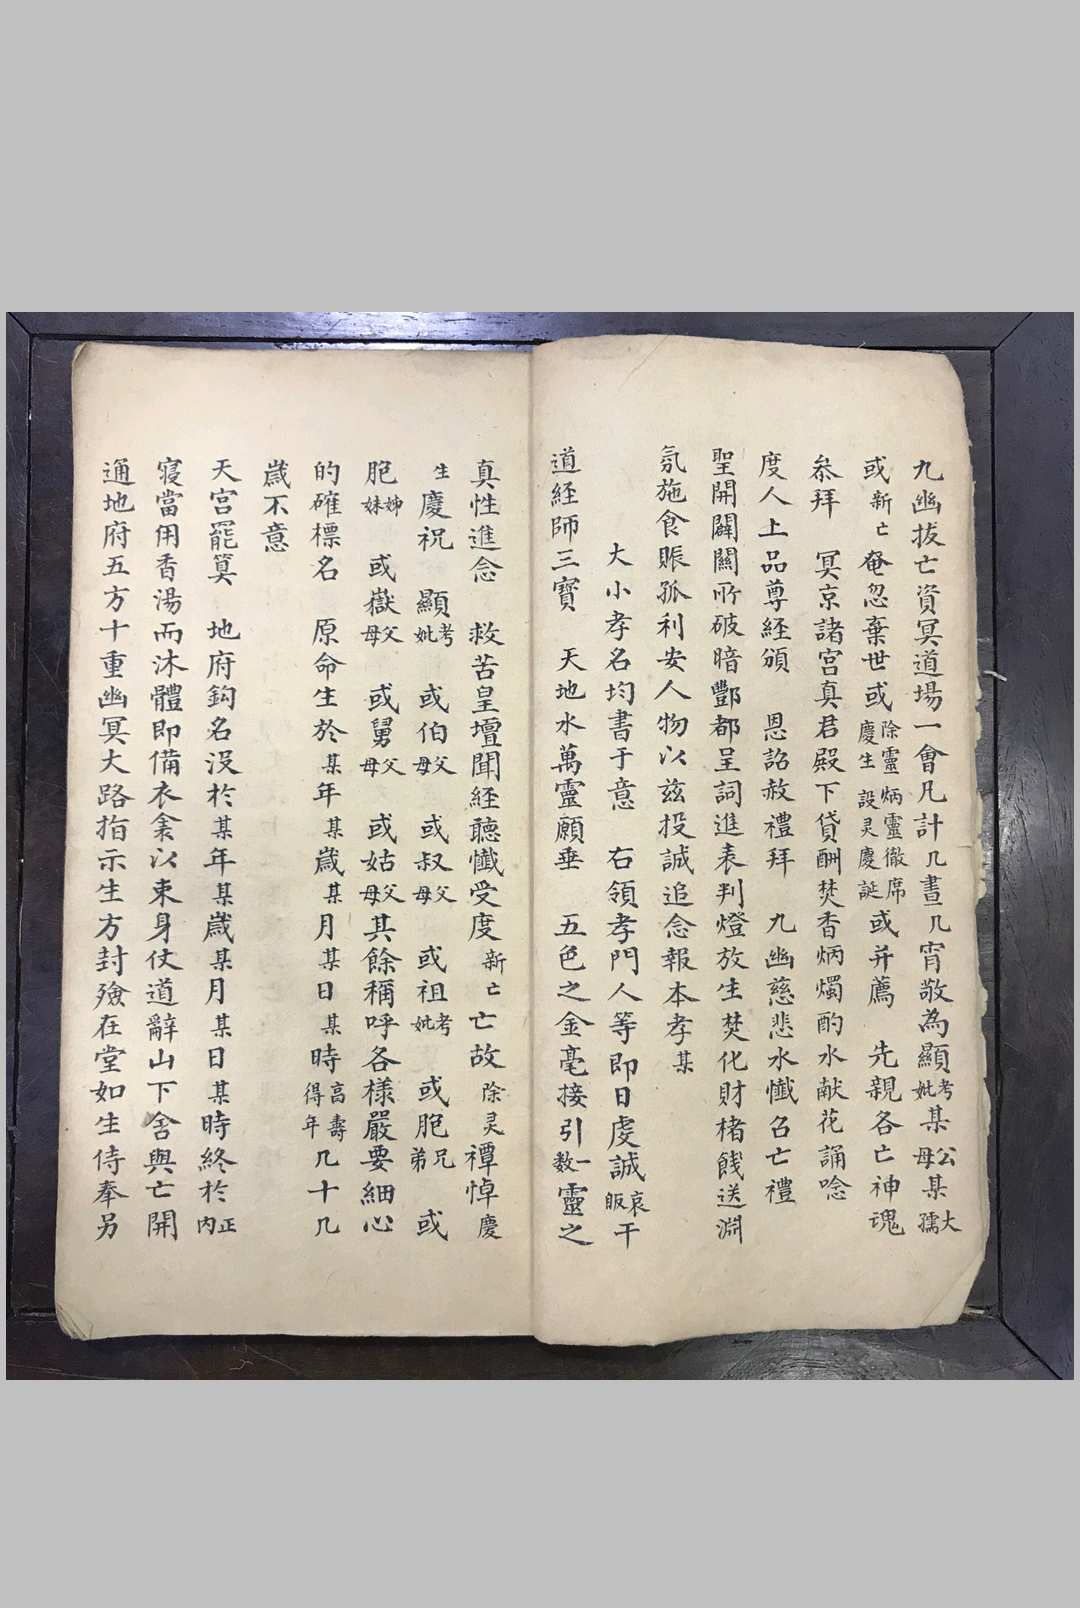 九幽拔亡資冥道場一會凡計几晝几宵敬為顯考妣某公母某大孺
或新亡奄忽棄世或除靈慶生炳靈設灵徹席慶誕或并薦　先親各亡神魂
叅拜　冥京諸宮真君殿下貸酬焚香炳燭酌水献花誦唸
度人上品尊経頒　恩詔赦禮拜　九幽慈悲水懺召亡禮
聖開闢關所破暗酆都呈詞進表判燈放生焚化財楮餞送淵
氛施食賬孤利安人物以茲投誠追念報本孝某
大小孝名均書于意　右領孝門人等即日虔誠哀皈干
道経師三寶　天地水萬靈願垂　五色之金毫接引一数靈之
真性進念　救苦皇壇聞経聽懺受度新亡亡故除灵禫悼慶
生慶祝　顯考妣　或伯父母　或叔父母　或祖考妣　或胞兄弟　或
胞姊妹　或嶽父母　或舅父母　或姑父母其餘稱呼各樣嚴要細心
的確標名　原命生於某年某歲某月某日某時高壽得年几十几
歲不意
天宮罷筭　地府鈎名沒於某年某歲某月某日某時終於正內
寢當用香湯而沐體即備衣衾以束身仗道辭山下舍與亡開
通地府五方十重幽冥大路指示生方封殮在堂如生侍奉另